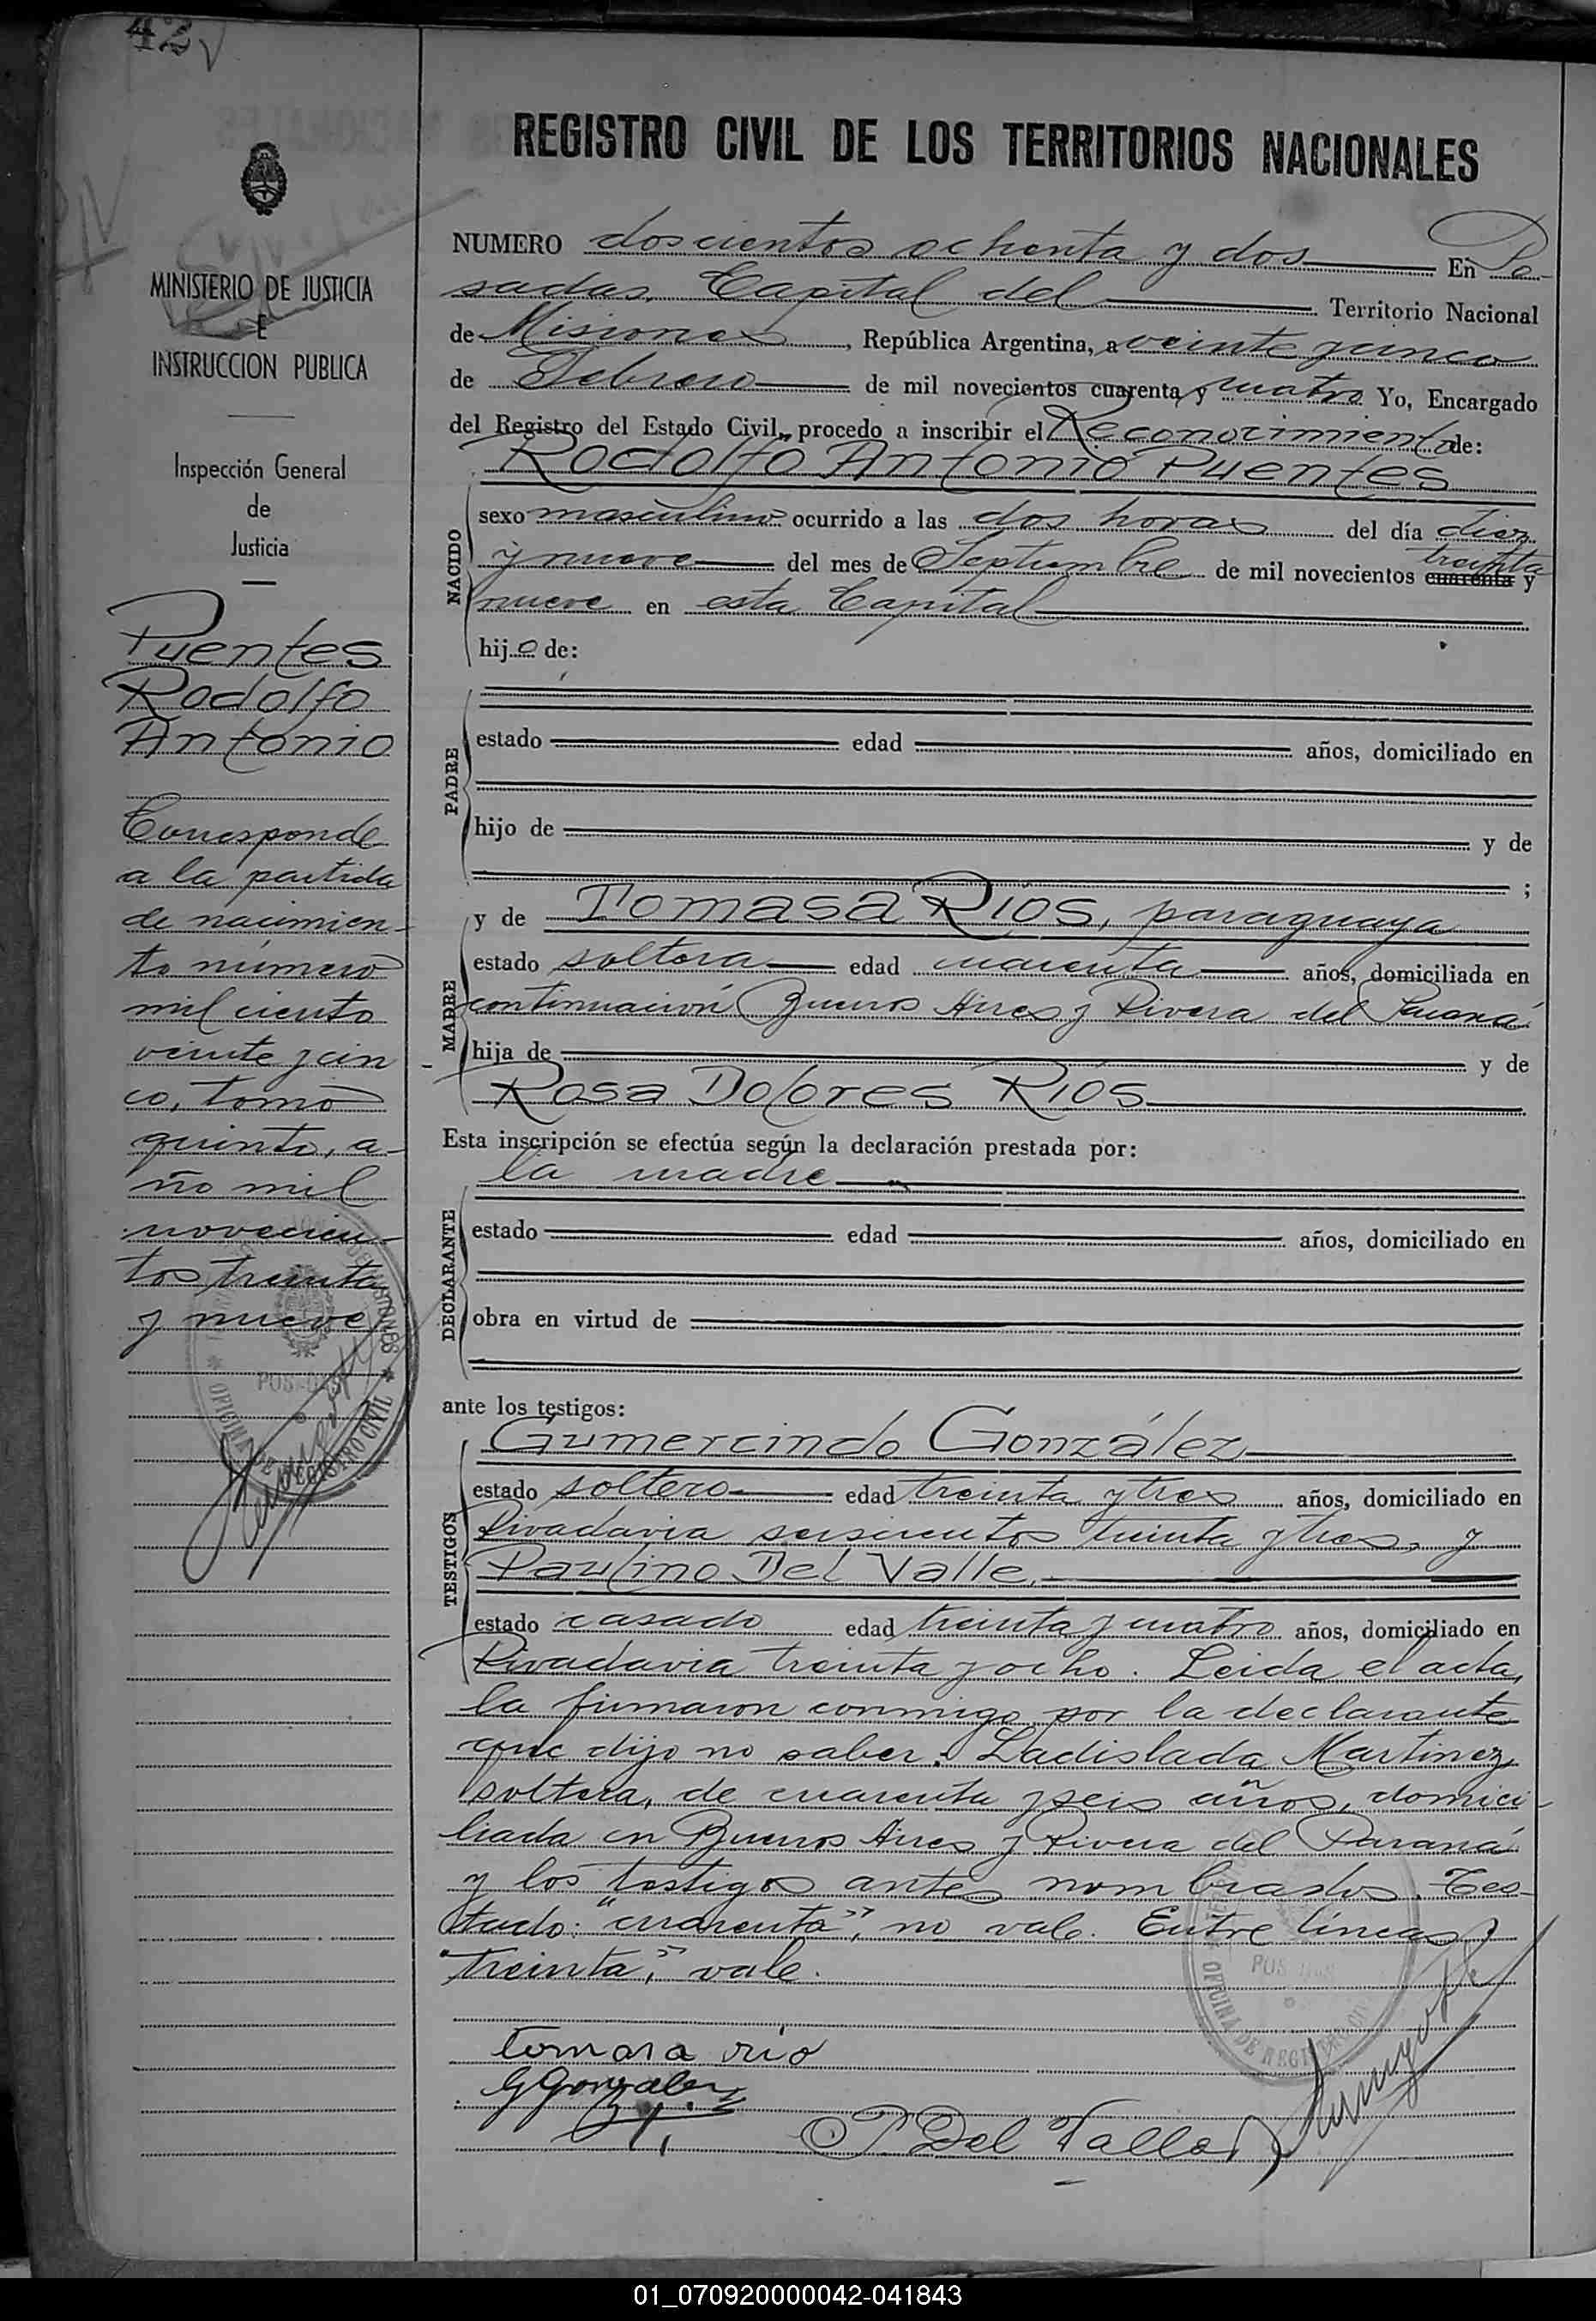 42
REGISTRO CIVIL DE LOS TERRITORIOS NACIONALES
MINISTERIO DE JUSTICIA
E
INSTRUCCION PUBLICA
Inspección General
de
Justicia
Puentes
Rodolfo
Antonio
Corresponde
a la partida
de nacimien-
to número
mil ciento
veinte y cin
co, tomo
quinto, a-
ño mil
novecien-
tos treinta
y nueve
NUMERO doscientos ochenta y dos En Po-
sadas, Capital del Territorio Nacional
de Misiones, República Argentina, a veinte y cinco
de Febrero de mil novecientos cuarenta y cuatro Yo, Encargado
del Registro del Estado Civil, procedo a inscribir el Reconocimiento de:
Rodolfo Antonio Puentes
NACIDO
sexo masculino ocurrido a las dos horas del día diez
y nueve del mes de Septiembre de mil novecientos cuarenta treinta y
nueve en esta Capital
hijo de:
PADRE
estado edad años, domiciliado en
hijo de y de
;
MADRE
y de Tomasa Ríos, paraguaya
estado soltera edad cuarenta años, domiciliada en
continuación Buenos Aires y Rivera del Paraná
hija de y de
Rosa Dolores Ríos
Esta inscripción se efectúa según la declaración prestada por:
la madre
DECLARANTE
estado edad años, domiciliado en
obra en virtud de
ante los testigos:
TESTIGOS
Gumercindo González
estado soltero edad treinta y tres años, domiciliado en
Rivadavia seiscientos treinta y tres, y
Paulino Del Valle,
estado casado edad treinta y cuatro años, domiciliado en
Rivadavia treinta y ocho. Leida el acta,
la firmaron conmigo por la declarante
que dijo no saber. Ladislada Martinez,
soltera, de cuarenta y seis años, domici-
liada en Buenos Aires y Rivera del Paraná
y los testigos antes nombrados. Tes-
tado: "cuarenta", no vale. Entre líneas,
"treinta", vale.
tomasa rio
G Gonzalez
P Del Valle
POSADAS
OFICINA DE REGISTRO CIVIL
01_070920000042-041843